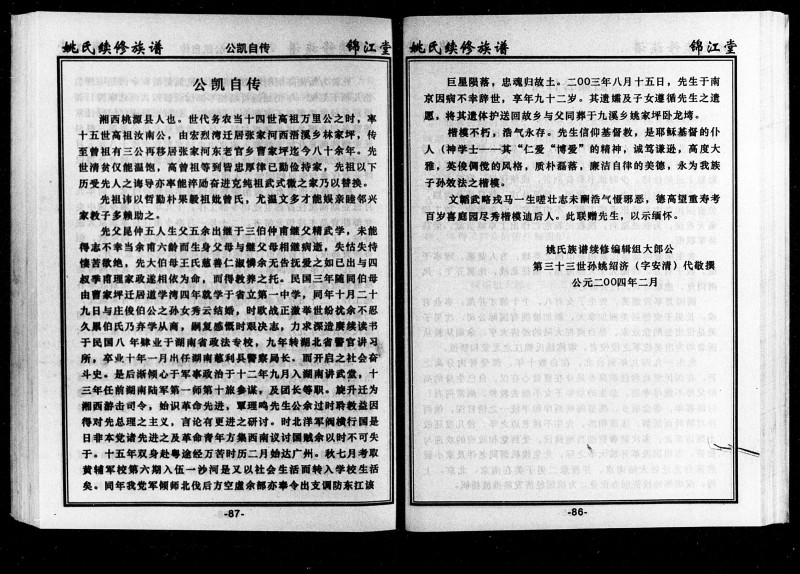 姚氏续修族谱 公凯自传 锦江堂
公凯自传
湘西桃源县人也。世代务农当十四世高祖万里公之时，率
十五世高祖汝南公，由宏烈湾迁居张家河西浯溪乡林家坪，传
至曾祖有三公再移居张家河东老官乡曹家坪迄今八十余年。先
世清贫仅能温饱，高曾祖等到皆忠厚律已勤俭持家，先祖以下
历受先人之诲导亦率能淬励奋进克纯祖武式微之家乃以替换。
先祖讳以哲勤朴果毅祖妣曾氏，尤温文多才能娱亲睦邻兴
家教子多赖助之。
先父昆仲五人生父五余出继于三伯仲甫继父精武学，未能
得志不幸当余甫六龄而生身父母与继父母相继病逝，失怙失恃
悽苦欲绝，先大伯母王氏慈善仁嫌怜余无告抚爱之如已出与四
叔季甫理家政遂相依为命，而得教养之托。民国三年随同伯母
由曹家坪迁居道学湾四年就学于省立第一中学，同年十月二十
九日与庄俊伯公之孙女秀云结婚，时欧战正激举世纷扰余不忍
久累伯氏乃弃学从商，嗣复感慨时艰决志，力求深造赓续读书
于民国八 年肄业于湖南省政法专校，九年转湖北省警官讲习
所，卒业十年一月出任湖南慈利县警察局长。而开启之社会奋
斗史。是后渐倾心于军事政治于十二年九月入湖南讲武堂，十
三年任前湖南陆军第一师第十旅参谋，及团长等职。旋升迁为
湘西游击司令，始识革命先进，覃理鸣先生公余过时聆教益因
得对先总理之主义，言论有更进之研讨。时北洋军阀横行国是
日非本党诸先进之及革命青年方集西南议讨国贼余以时不可失
于。十五年双身赴粤途经万苦时历二月始达广州。秋七月考取
黄辅军校第六期入伍一沙河是又以社会生活而转入学校生活
矣。同年我党军领师北伐后方空虚余部亦奉令出支调防东江该
-87-
姚氏续修族谱 锦江堂
巨星陨落，忠魂归故土。二00三年八月十五日，先生于南
京因病不幸辞世，享年九十二岁。其遗孀及子女遵循先生之遗
愿，将其遗体护送回故乡与父同葬于九溪乡姚家坪卧龙塆。
楷模不朽，浩气永存。先生信仰基督教，是耶稣基督的仆
人（神学士——其“仁爱“博爱”的精神，诚笃谦逊，高度大
雅，英俊倜傥的风格，质朴磊落，廉洁自律的美德，永为我族
子孙效法之楷模。
文韬武略戎马一生嗟壮志未酬浩气慑邪恶，德高望重寿考
百岁喜庭园尽秀楷模迪后人。此联赠先生，以示缅怀。
姚氏族谱续修编辑组大郎公
第三十三世孙姚绍济（字安清）代敬撰
公元二00四年二月
-86-